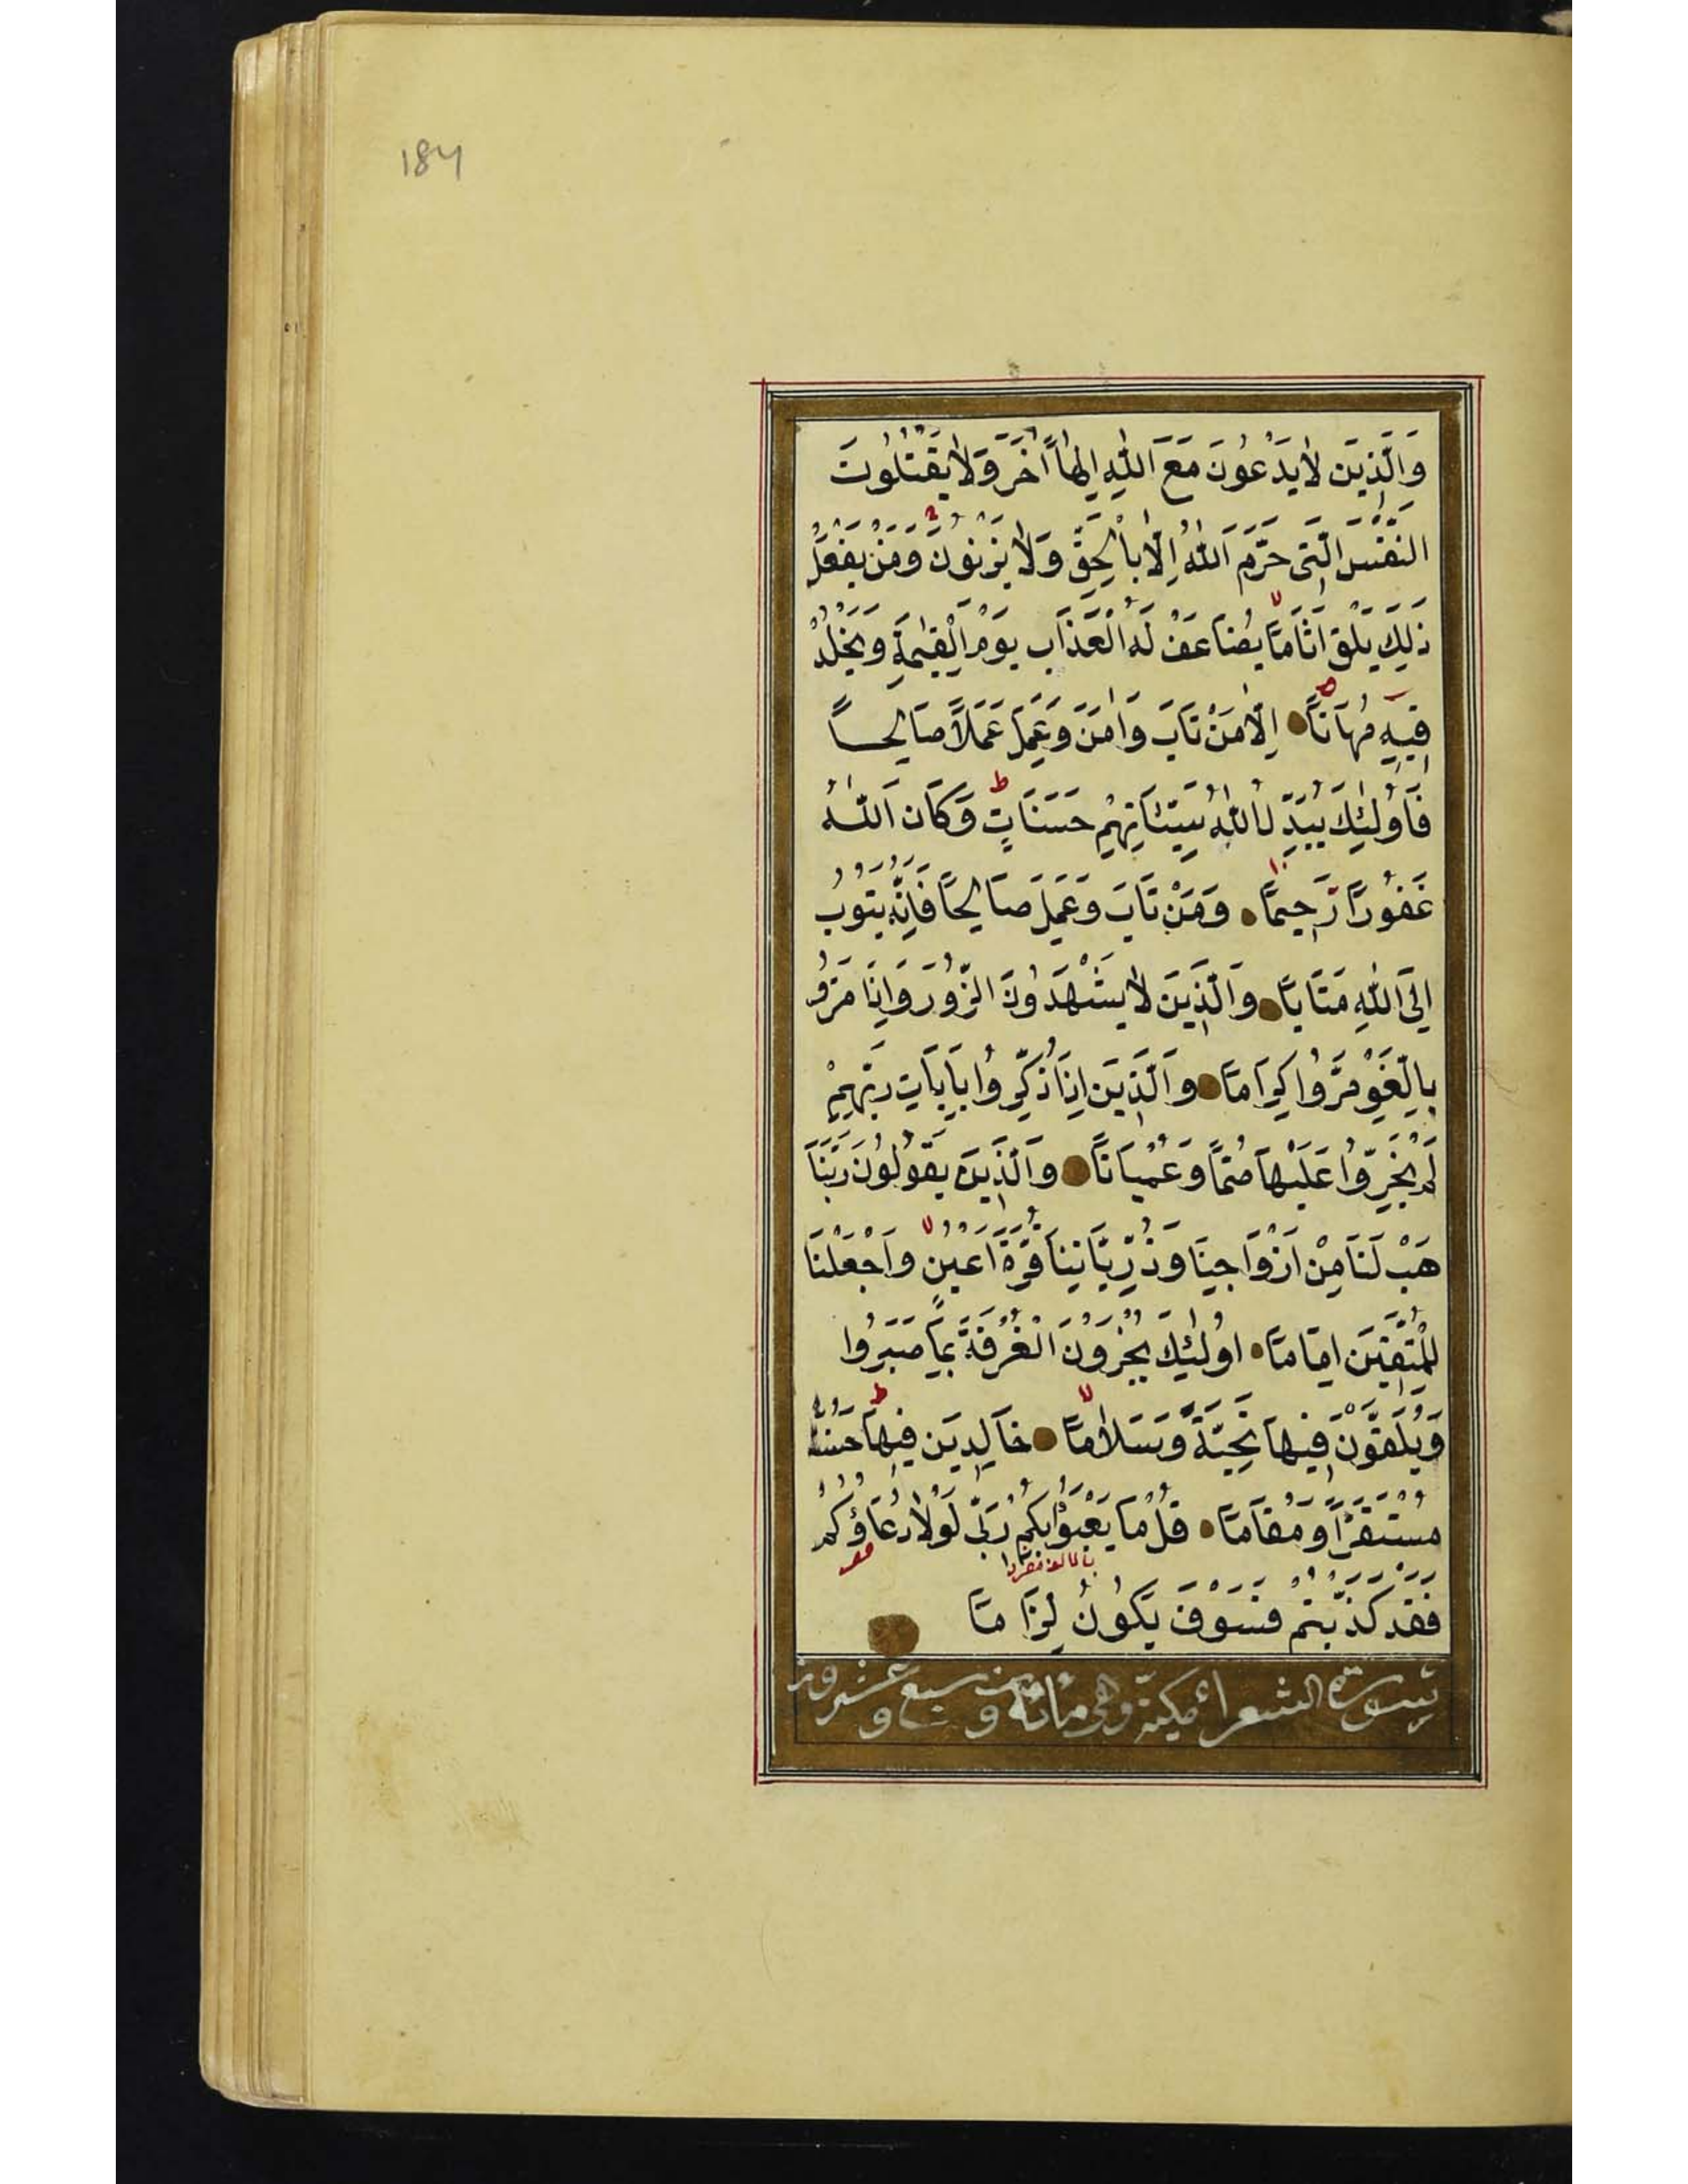 184
وَالَّذِينَ لَا يَدْعُونَ مَعَ اللّٰهِ اِلٰهاً اٰخَرَ وَلَا يَقْتُلُونَ
النَّفْسَ الَّتِى حَرَّمَ اللّٰهُ اِلَّا بِالْحَقِّ وَلَا يَزْنُونَ وَمَنْ يَفْعَلْ
ذٰلِكَ يَلْقَ اَثَامًا يُضَاعَفْ لَهُ الْعَذَابُ يَوْمَ الْقِيٰمَةِ وَيَخْلُدْ
فِيهِ مُهَانًا اِلَّا مَنْ تَابَ وَاٰمَنَ وَعَمِلَ عَمَلًا صَالِحًا
فَاُولٰئِكَ يُبَدِّلُ اللّٰهُ سَيِّئَاتِهِمْ حَسَنَاتٍ ط وَكَانَ اللّٰهُ
غَفُورًا رَحِيمًا وَمَنْ تَابَ وَعَمِلَ صَالِحًا فَاِنَّهُ يَتُوبُ
اِلَى اللّٰهِ مَتَابًا وَالَّذِينَ لَا يَشْهَدُونَ الزُّورَ وَاِذَا مَرُّو
بِاللَّغْوِ مَرُّوا كِرَامًا وَالَّذِينَ اِذَا ذُكِّرُوا بِاٰيَاتِ رَبِّهِمْ
لَمْ يَخِرُّوا عَلَيْهَا صُمًّا وَعُمْيَانًا وَالَّذِينَ يَقُولُونَ رَبَّنَا
هَبْ لَنَا مِنْ اَزْوَاجِنَا وَذُرِّيَّاتِنَا قُرَّةَ اَعْيُنٍ وَاجْعَلْنَا
لِلْمُتَّقِينَ اِمَامًا اُولٰئِكَ يُجْزَوْنَ الْغُرْفَةَ بِمَا صَبَرُوا
وَيُلَقَّوْنَ فِيهَا تَحِيَّةً وَسَلَامًا خَالِدِينَ فِيهَا ط حَسُنَتْ
مُسْتَقَرًّا وَمُقَامًا قُلْ مَا يَعْبَؤُا بِكُمْ رَبِّى لَوْلَا دُعَاؤُكُمْ
فَقَدْ كَذَّبْتُمْ فَسَوْفَ يَكُونُ لِزَامًا
سورة الشعراء مكية وهى مائة و سبع و عشرون